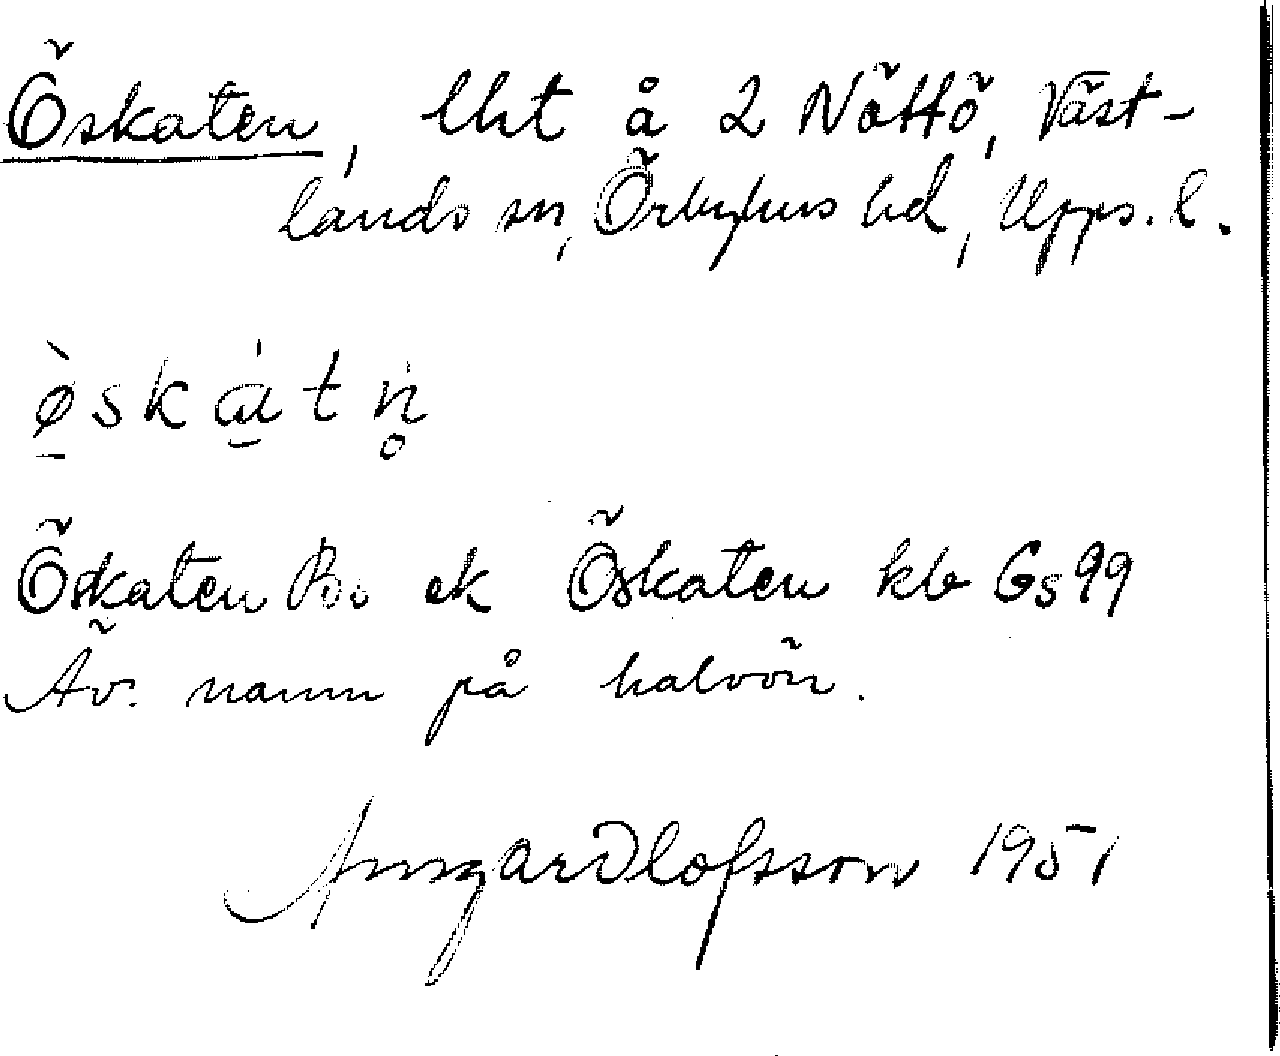 Öskaten, lht å 2 Nöttö, Väst-
lands sn, Örbyhus hd, Upps. l.
ø̱̀skɑ̱́tṇ̊
Öskaten Bo ek Öskaten kb Gs 99
Äv. namn på halvön.
Olofsson 1951